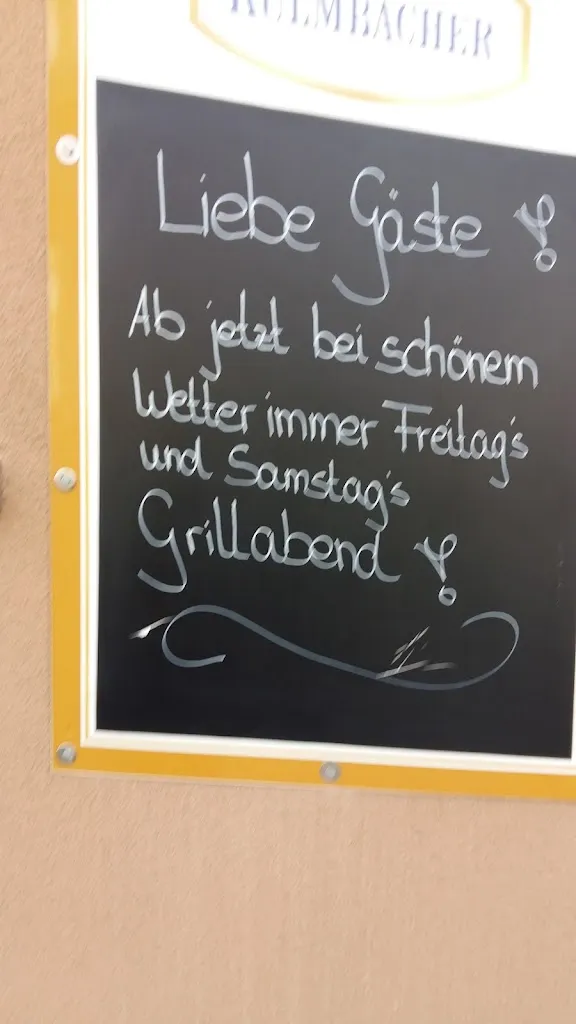 KULMBACHER
Liebe Gäste!
Ab jetzt bei schönem
Wetter immer Freitag's
und Samstag's
Grillabend!